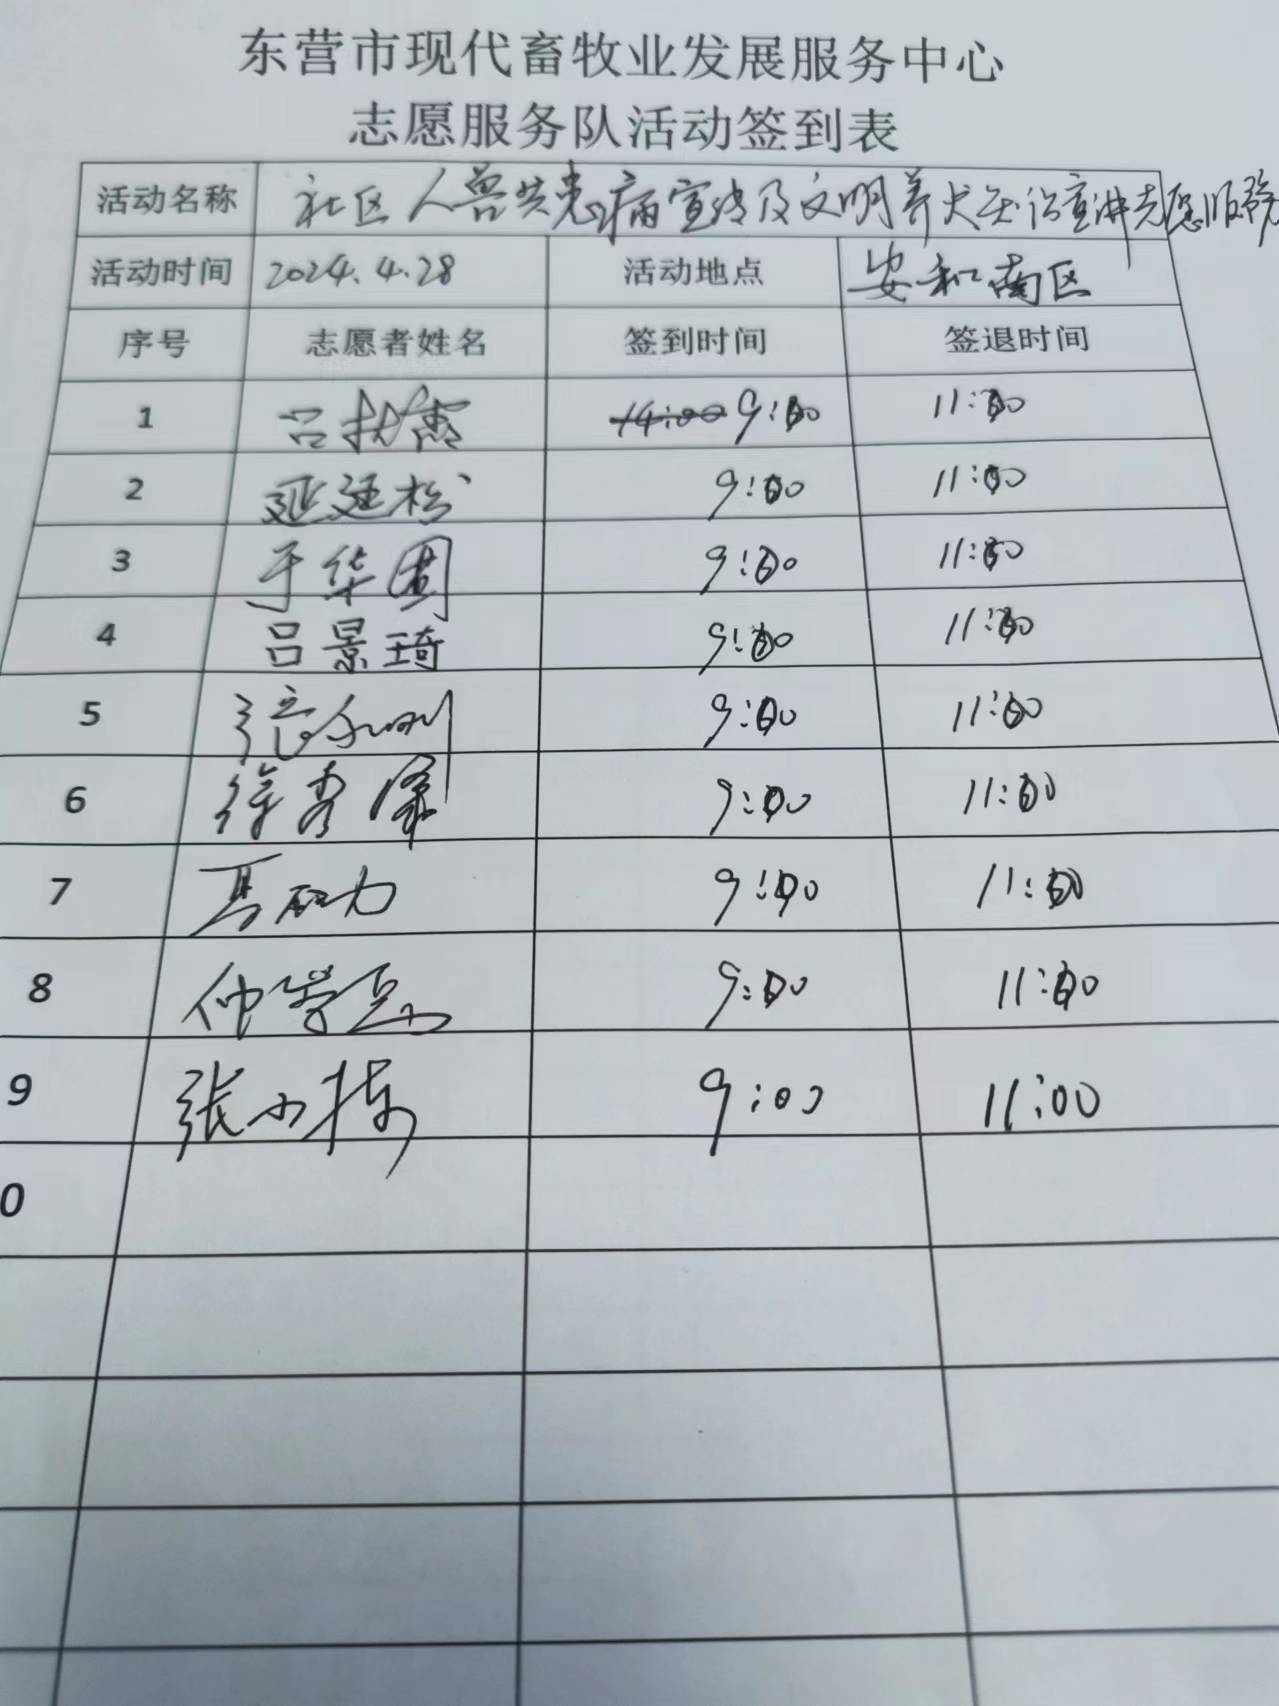 东营市现代畜牧业发展服务中心
志愿服务队活动签到表
活动名称 社区人兽共患病宣传及文明养犬法治宣讲志愿服务
活动时间 2024.4.28 活动地点 安和南区
序号 志愿者姓名 签到时间 签退时间
1 吕 14:00 9:00 11:00
2 延廷松 9:00 11:00
3 于华国 9:00 11:00
4 吕景琦 9:00 11:00
5 9:00 11:00
6 徐秀 9:00 11:00
7 马 力 9:00 11:00
8 仲学 9:00 11:00
9 张小栋 9:00 11:00
0